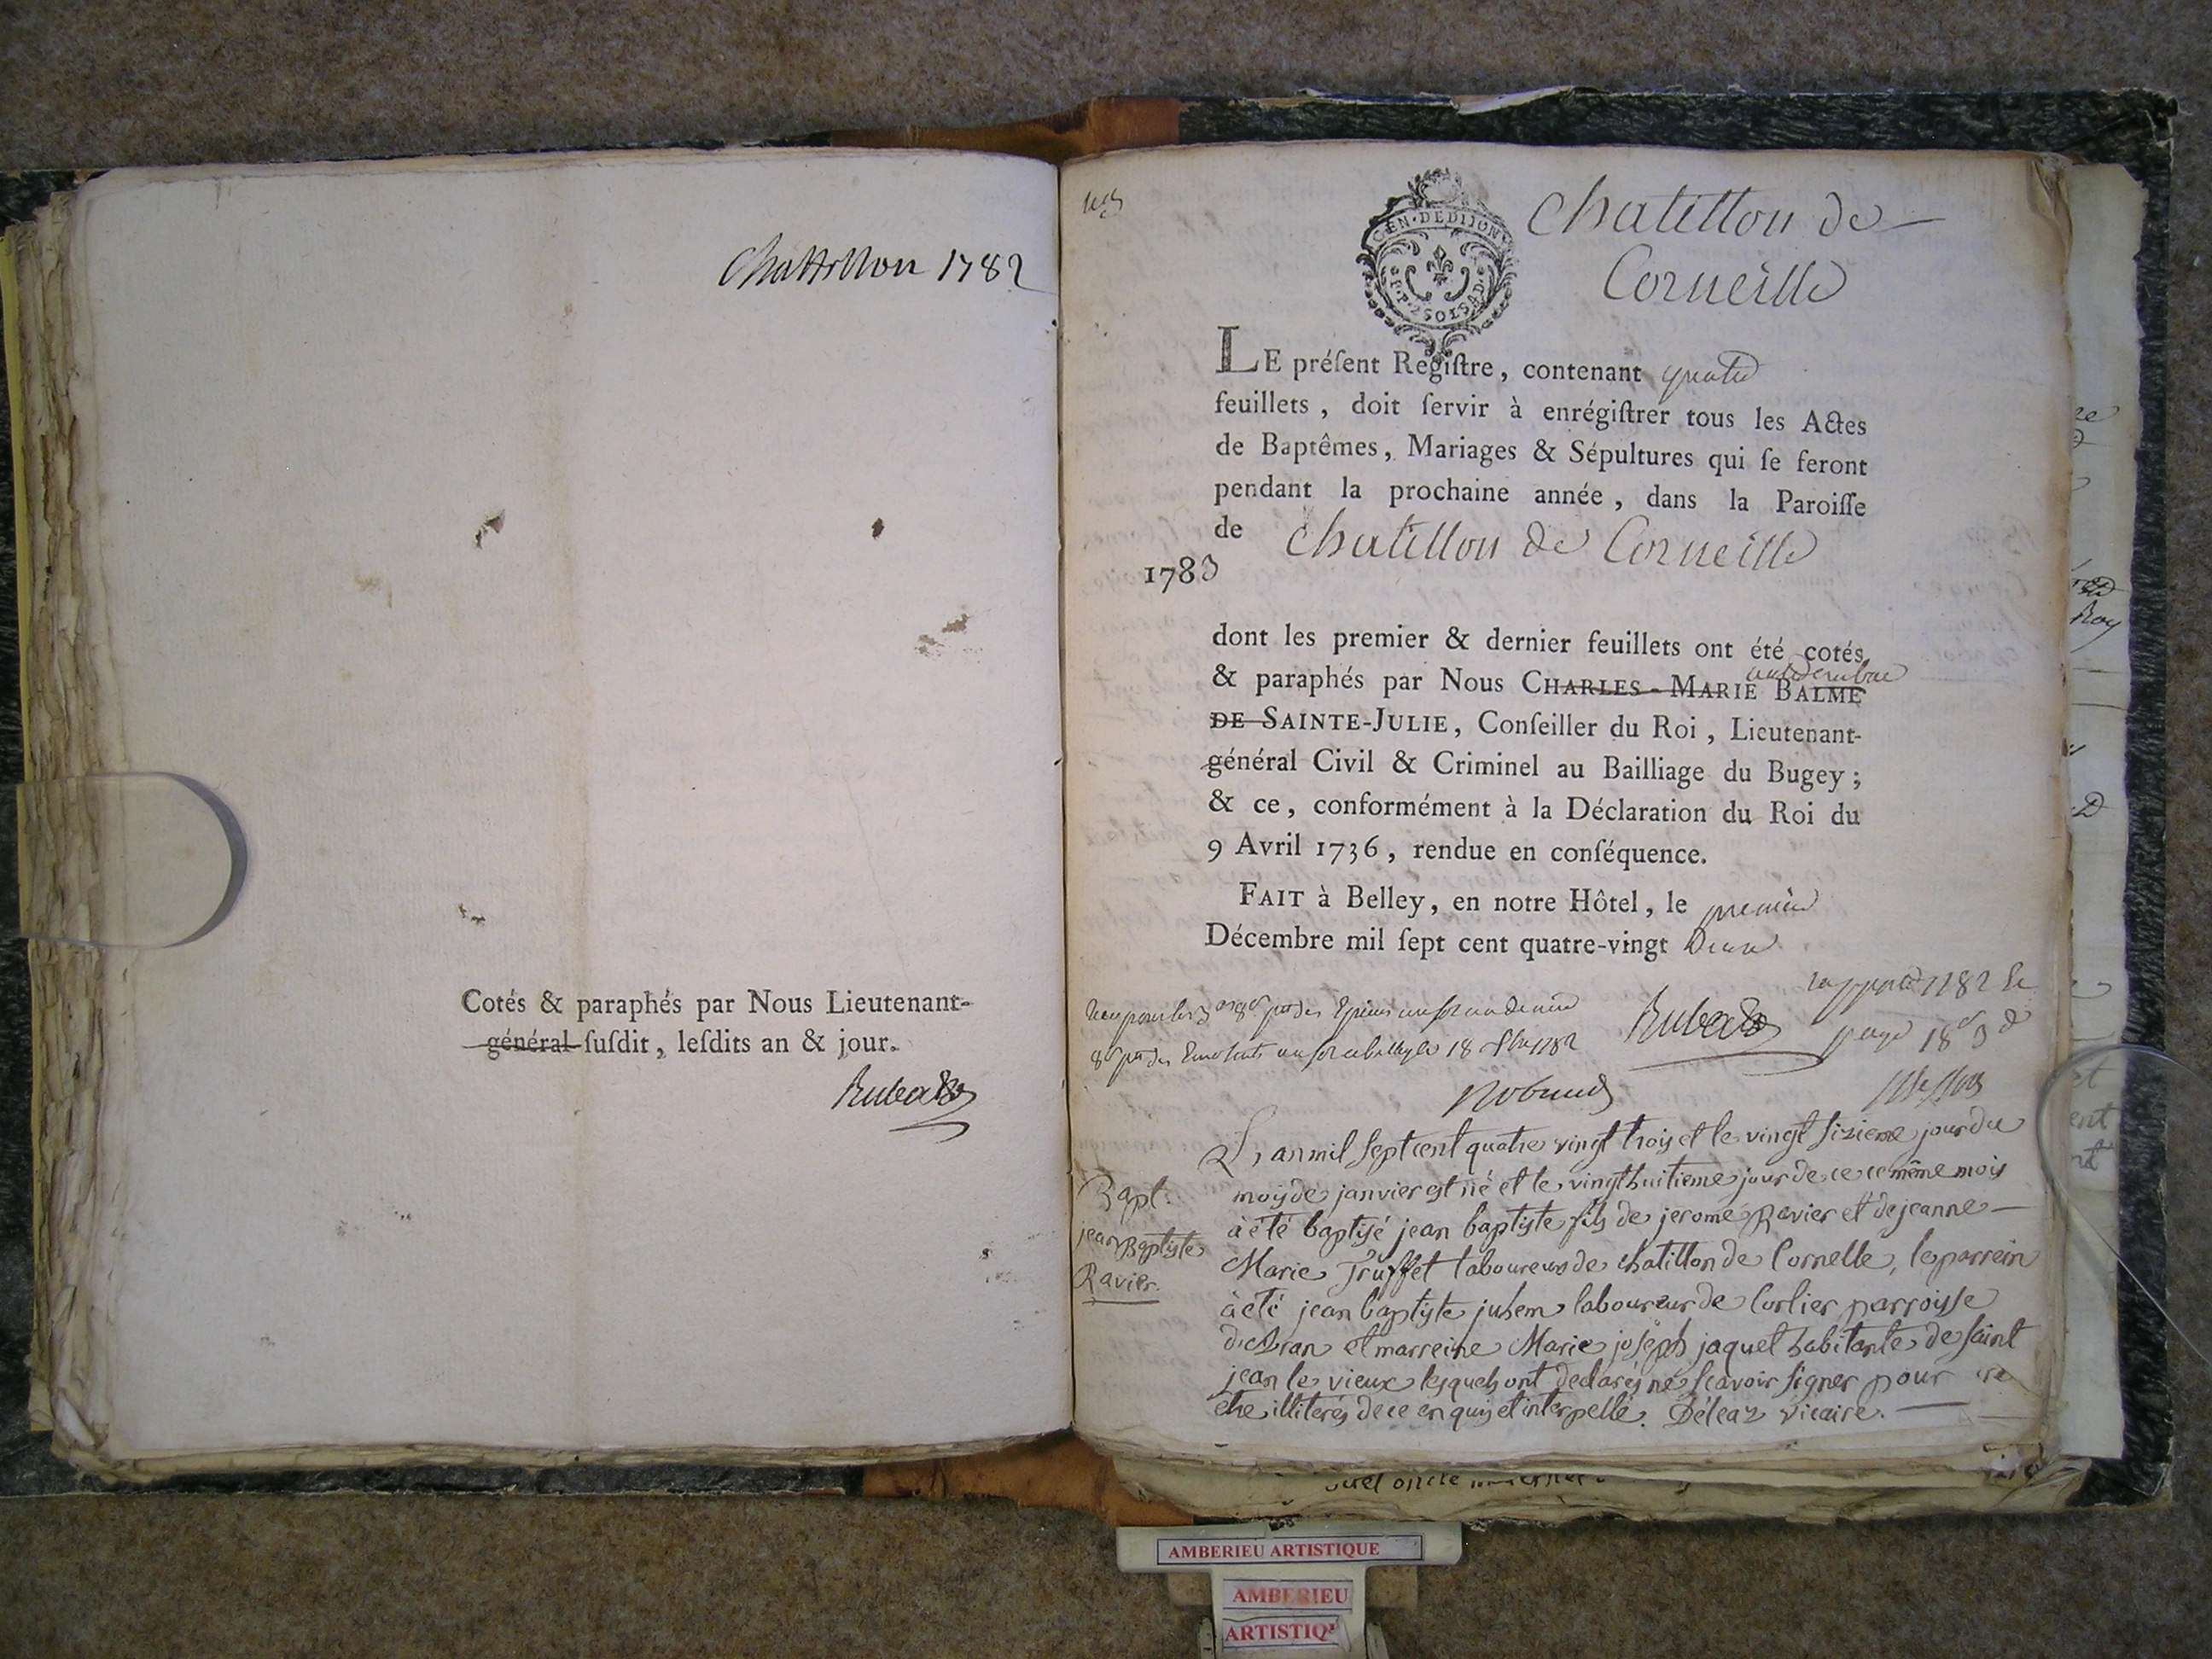 Chattillon 1782
Cotés & paraphés par Nous Lieutenant-
général susdit, lesdits an & jour.
GEN. DE DIJON
Chatillon de
Corneille
LE préſent Regiſtre, contenant quatre
feuillets, doit ſervir à enrégiſtrer tous les Actes
de Baptêmes, Mariages & Sépultures qui ſe feront
pendant la prochaine année, dans la Paroiſſe
de Chatillon de Corneille
1783
dont les premier & dernier feuillets ont été cotés
& paraphés par Nous CHARLES-MARIE BALME
DE SAINTE-JULIE, Conſeiller du Roi, Lieutenant-
général Civil & Criminel au Bailliage du Bugey;
& ce, conformément à la Déclaration du Roi du
9 Avril 1736, rendue en conſéquence.
FAIT à Belley, en notre Hôtel, le premier
Décembre mil ſept cent quatre-vingt deux
L'an mil sept cent quatre vingt trois et le vingt sixieme jour du
mois de janvier est né et le vingt huitieme jour de ce ce même mois
à été baptisé jean baptiste fils de jerome Ravier et de jeanne
Marie Truffet laboureurs de chatillon de Cornelle, le parrein
à eté jean baptiste juhem laboureur de Corlier parroisse
d'Aran et marreine Marie joseph jaquet habitante de saint
jean le vieux lesquels ont declarés ne scavoir signer pour
etre illiterés de ce enquis et interpellé. Déleaz vicaire.
Bapt.
jean Baptiste
Ravier.
AMBERIEU ARTISTIQUE
AMBERIEU
ARTISTIQ